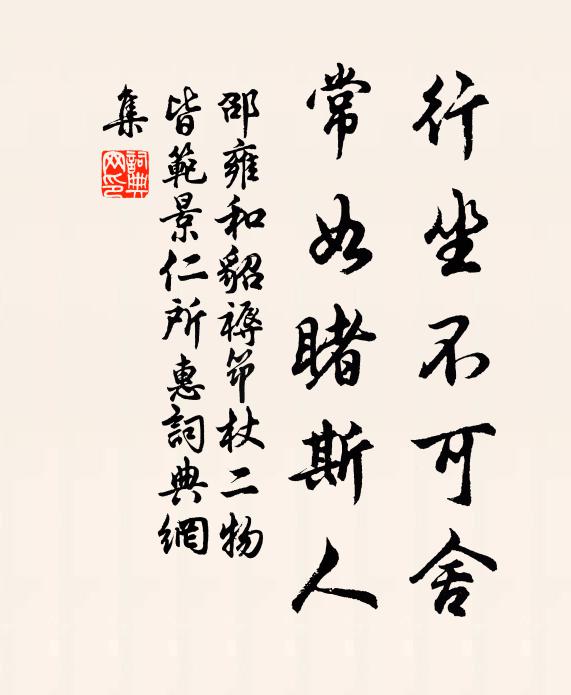 行坐不可舍
常如睹斯人
邵雍和貂褥筇杖二物
皆範景仁所惠詞典網
集
詞典網印